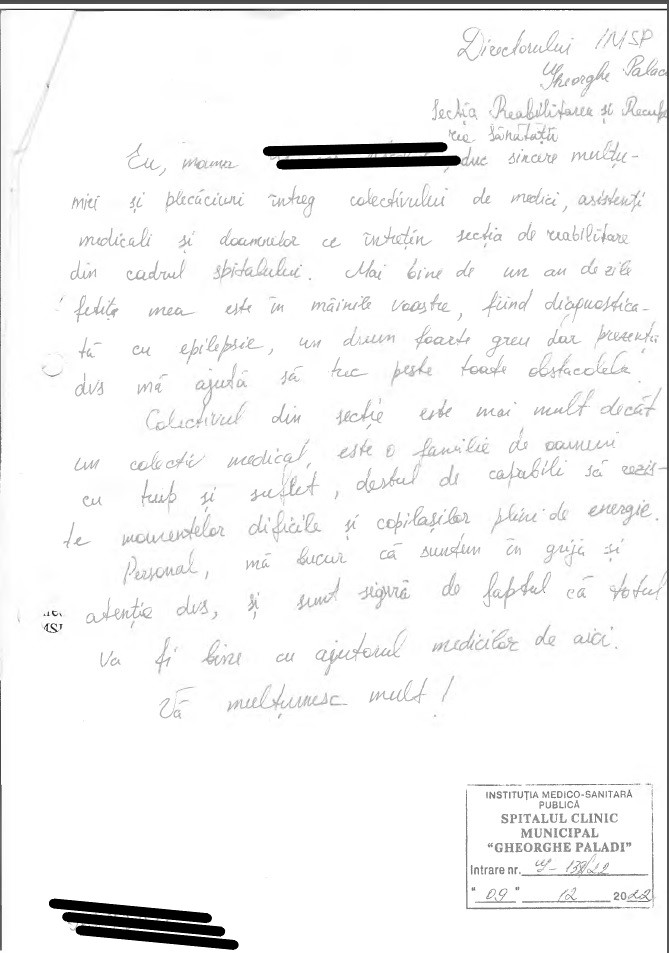 Directorului IMSP
Gheorghe Palad
Secția Reabilitarea și Recupe
rea Sănătății
Eu, mama duc sincere mulțu-
miri și plecăciuni întreg colectivului de medici, asistenți
medicali și doamnelor ce întrețin secția de reabilitare
din cadrul spitalului. Mai bine de un an de zile
fetița mea este în mâinile voastre, fiind diagnostica-
tă cu epilepsie, un drum foarte greu dar prezența
dvs mă ajută să trec peste toate obstacolele.
Colectivul din secție este mai mult decât
un colectiv medical, este o familie de oameni
cu trup și suflet, destul de capabili să rezis-
te momentelor dificile și copilașilor plini de energie.
Personal, mă bucur că suntem în grija și
atenția dvs, și sunt sigură de faptul că totul
va fi bine cu ajutorul medicilor de aici.
Vă mulțumesc mult!
INSTITUȚIA MEDICO-SANITARĂ
PUBLICĂ
SPITALUL CLINIC
MUNICIPAL
"GHEORGHE PALADI"
Intrare nr.
"09" 12 2022